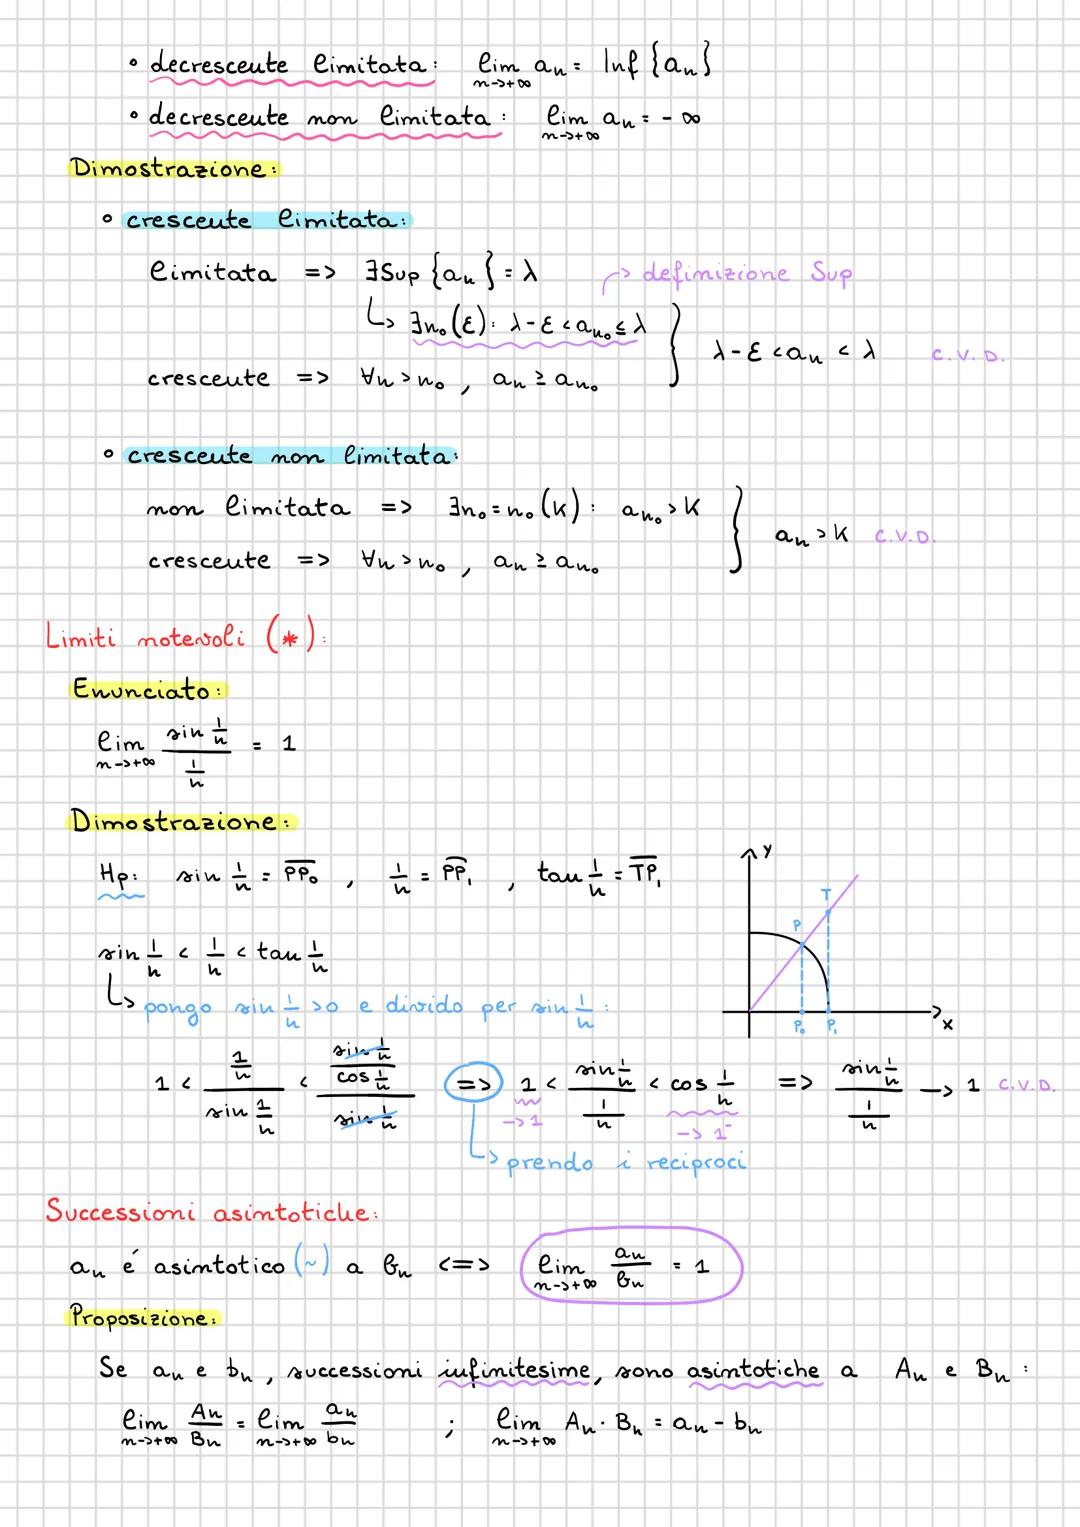 • decrescente limitata: lim n->+∞ an = Inf {an}
• decrescente non limitata: lim n->+∞ an = -∞
Dimostrazione:
• crescente limitata:
limitata => ∃Sup {an} = λ -> definizione Sup
↳ ∃n₀(ε): λ-ε < an₀ ≤ λ } λ-ε < an < λ C.V.D.
crescente => ∀n > n₀, an ≥ an₀
• crescente non limitata:
non limitata => ∃n₀ = n₀(k): an₀ > k } an > k C.V.D.
crescente => ∀n > n₀, an ≥ an₀
Limiti notevoli (*):
Enunciato:
lim n->+∞ (sin 1/n)/(1/n) = 1
Dimostrazione:
Hp: sin 1/n = PP₀, 1/n = PP₁, tan 1/n = TP₁
y
T
P
P₀ P₁
x
sin 1/n < 1/n < tan 1/n
↳ pongo sin 1/n > 0 e divido per sin 1/n:
1 < (1/n)/(sin 1/n) < ((sin 1/n)/(cos 1/n))/(sin 1/n) => 1 < (sin 1/n)/(1/n) < cos 1/n => (sin 1/n)/(1/n) -> 1 C.V.D.
-> 1 -> 1⁻
↳ prendo i reciproci
Successioni asintotiche:
an é asintotico (~) a bn <=> lim n->+∞ an/bn = 1
Proposizione:
Se an e bn, successioni infinitesime, sono asintotiche a An e Bn:
lim n->+∞ An/Bn = lim n->+∞ an/bn ; lim n->+∞ An · Bn = an - bn